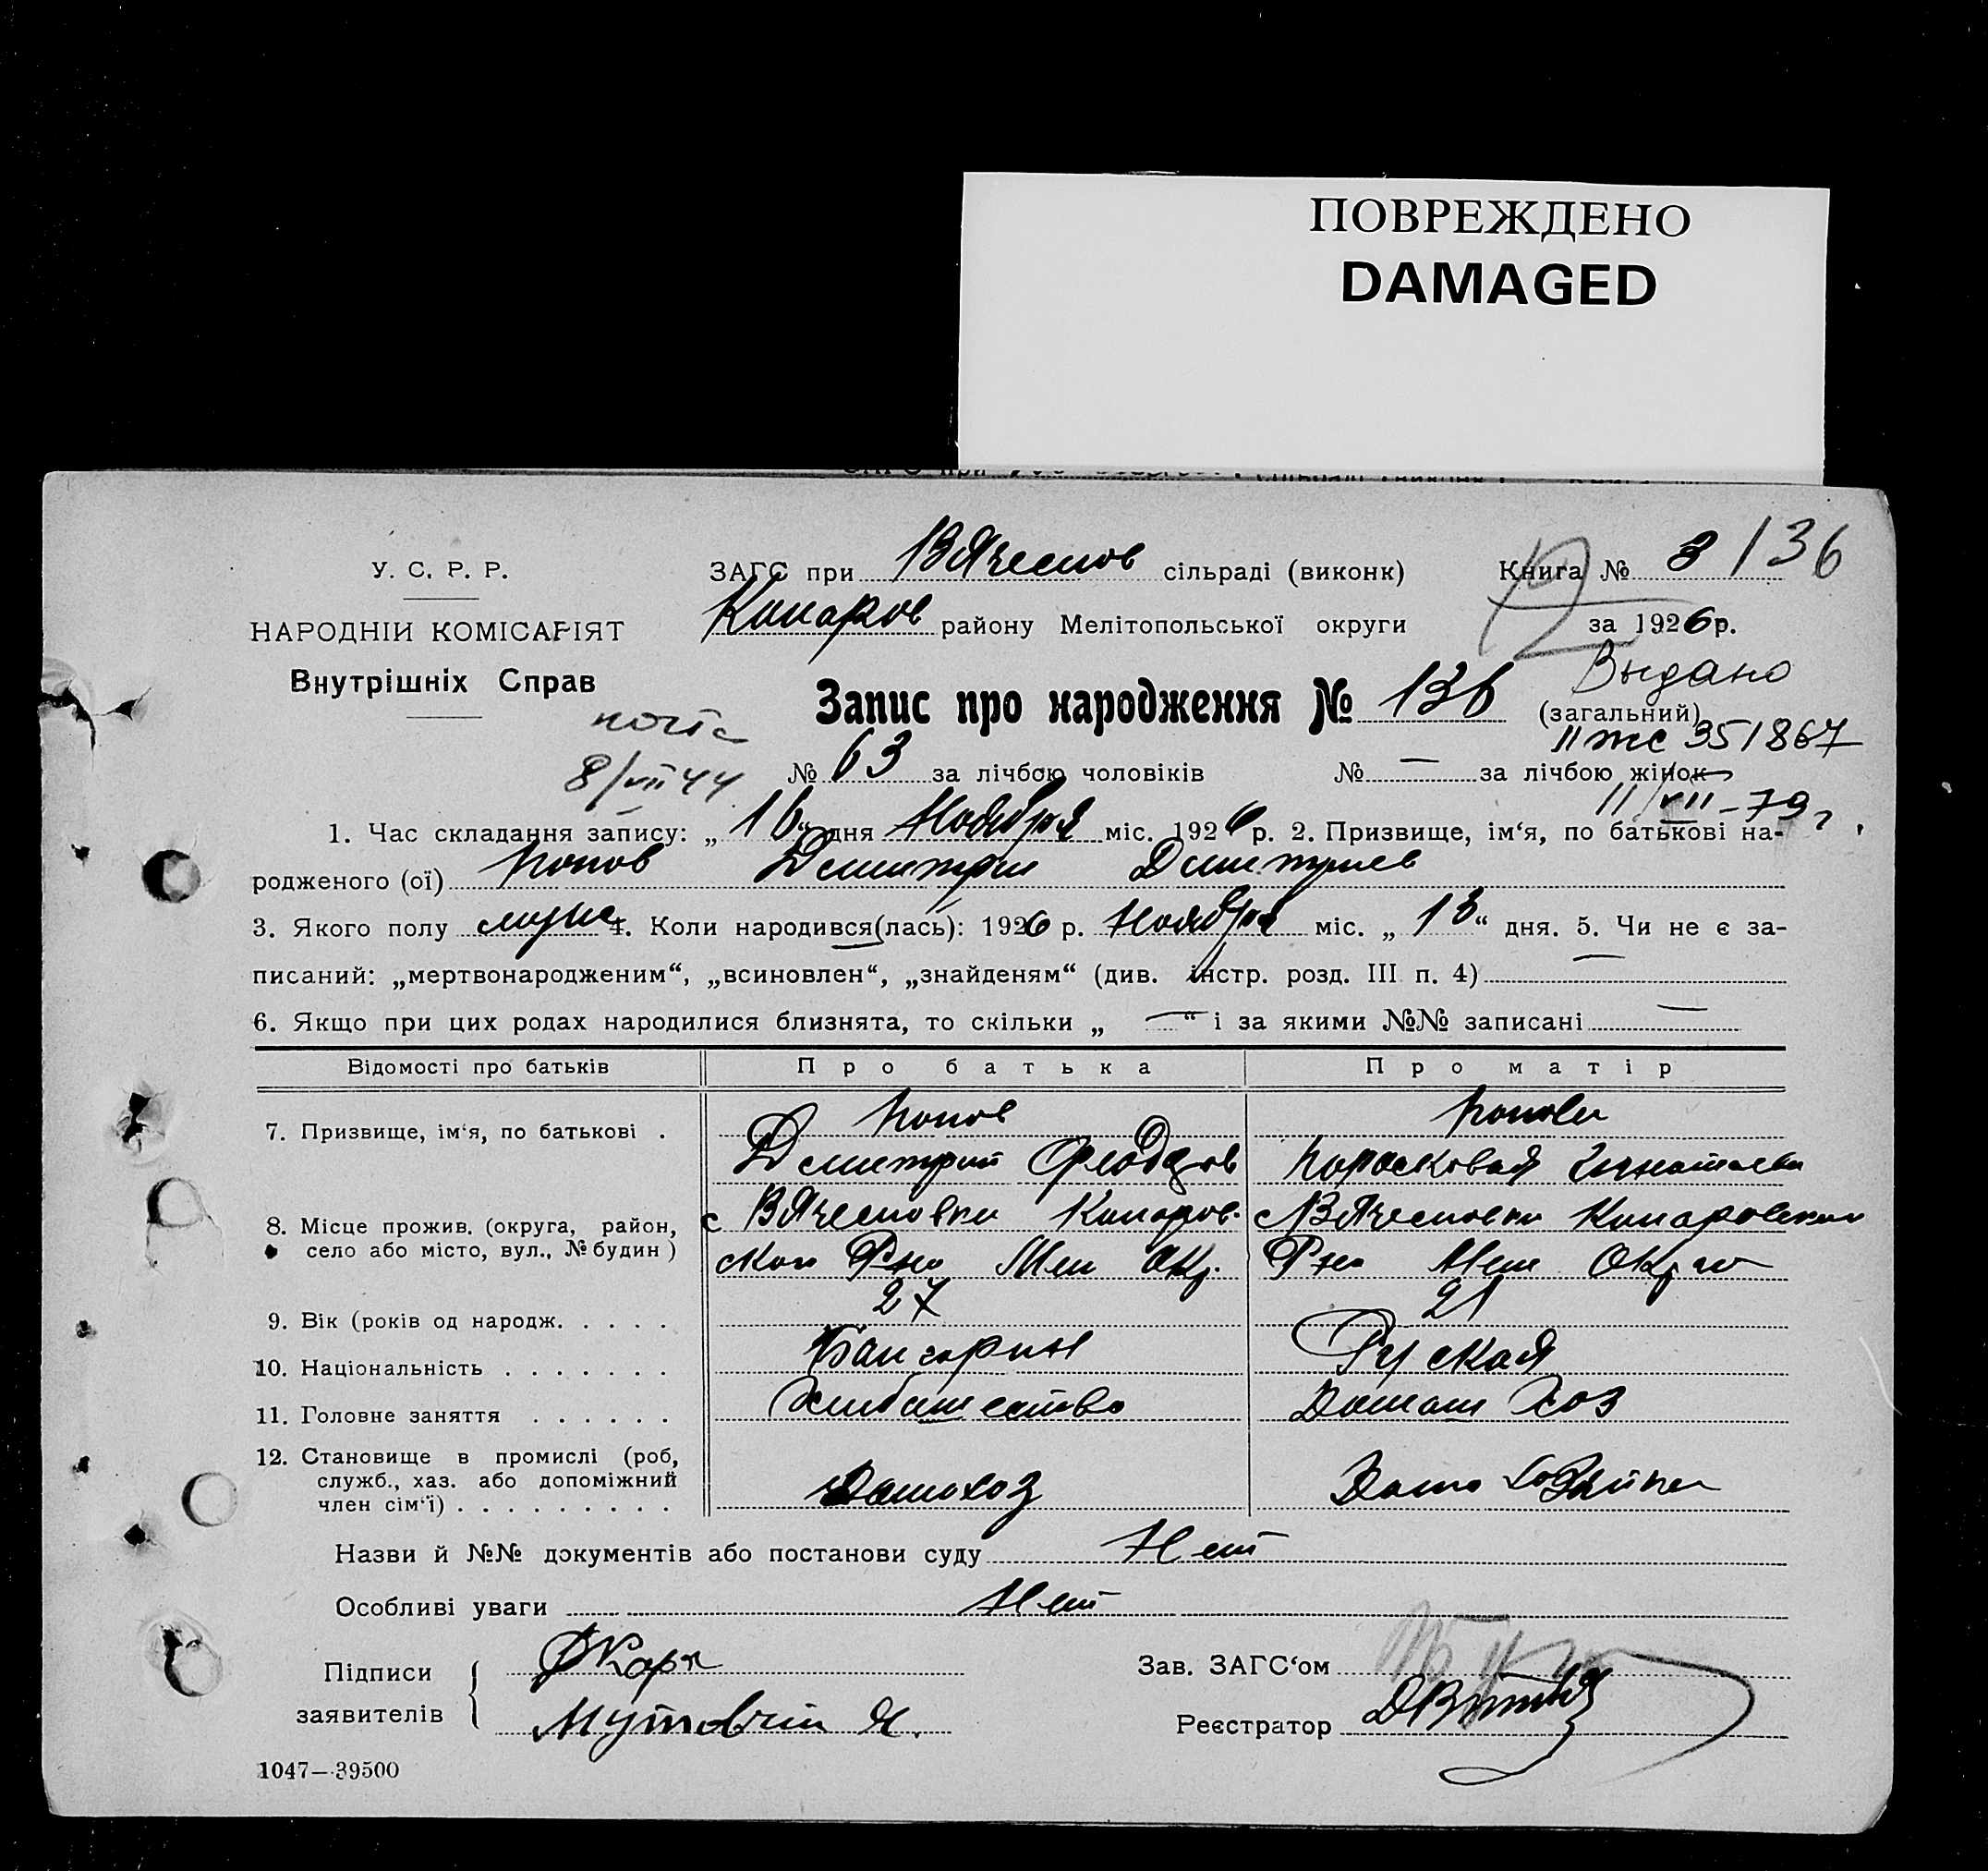 ПОВРЕЖДЕНО
DAMAGED
У. С. Р. Р.
НАРОДНІЙ КОМІСАРІЯТ
Внутрішніх Справ
почта
8/VII 44
ЗАГС при Вячеслов сільраді (виконк)
Книга № 3 136
району Мелітопольської округи
за 1926 р.
Выдано
Запис про народження № 136 (загальний)
II жс 351867
№ 63 за лічбою чоловіків № — за лічбою жінок
11/VII-79 г.
1. Час складання запису: „16“ дня Ноября міс. 1926 р. 2. Призвище, ім‘я, по батькові на-
родженого (ої) Попов Дмитрий Дмитриев
3. Якого полу муж 4. Коли народився(лась): 1926 р. Ноября міс. „13“ дня. 5. Чи не є за-
писаний: „мертвонародженим“, „всиновлен“, „знайденям“ (див. інстр. розд. III п. 4) —
6. Якщо при цих родах народилися близнята, то скільки „ — “ і за якими №№ записані —
Відомості про батьків Про батька Про матір
7. Призвище, ім‘я, по батькові . Попов Попова
Дмитрий Федоров Порасковая Игнатьева
8. Місце прожив. (округа, район, с Вячесловки с Вячесловки
село або місто, вул., № будин) Рно Мел Окр. Рно Мел Окр
9. Вік (років од народж. . . . . 27 21
10. Національність . . . . . . . Болгарин Руская
11. Головне заняття . . . . . . Хлибопашество Домаш Хоз
12. Становище в промислі (роб,
служб., хаз. або допоміжний Домохоз Домо
член сім‘ї) . . . . . . . . .
Назви й №№ документів або постанови суду Нет
Особливі уваги Нет
Підписи
заявителів
Зав. ЗАГС‘ом
Реєстратор
1047—39500